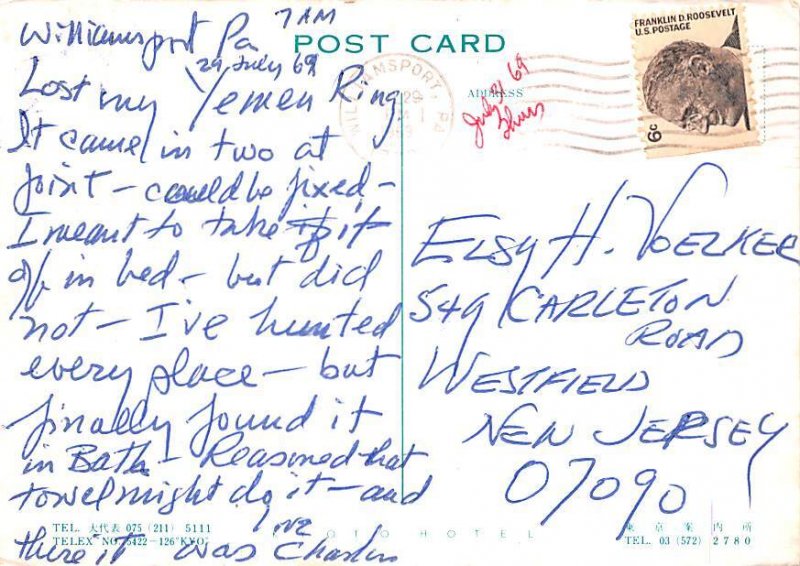 Williamsport Pa 7 AM
29 July 69
POST CARD
Lost my Yemen Ring
It came in two at
joint - could be fixed -
I meant to take it
off in bed - but did
not - I've hunted
every place - but
finally found it
in Bath - Reasoned that
towel might do it - and
there it was
ADDRESS
July 31 69
Thurs
WILLIAMSPORT, PA
29
FRANKLIN D. ROOSEVELT
U.S. POSTAGE
6c
ELSY H. VOELKER
549 CARLETON
ROAD
WESTFIELD
NEW JERSEY
07090
TEL. 大代表 075 (211) 5111
TELEX NO. 5422-126"KYO
KYOTO HOTEL
東京案内所
TEL. 03 (572) 2780